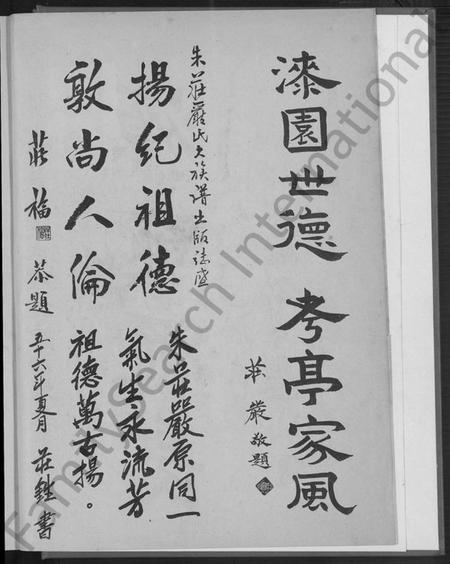 漆園世德 考亭家風
莊嚴敬題
朱莊嚴氏大族譜出版誌盛
揚紀祖德
敦尚人倫
莊福 恭題
朱莊嚴原同一
氣生永流芳
祖德萬古揚。
五十六年夏月 莊鉎書
FamilySearch International